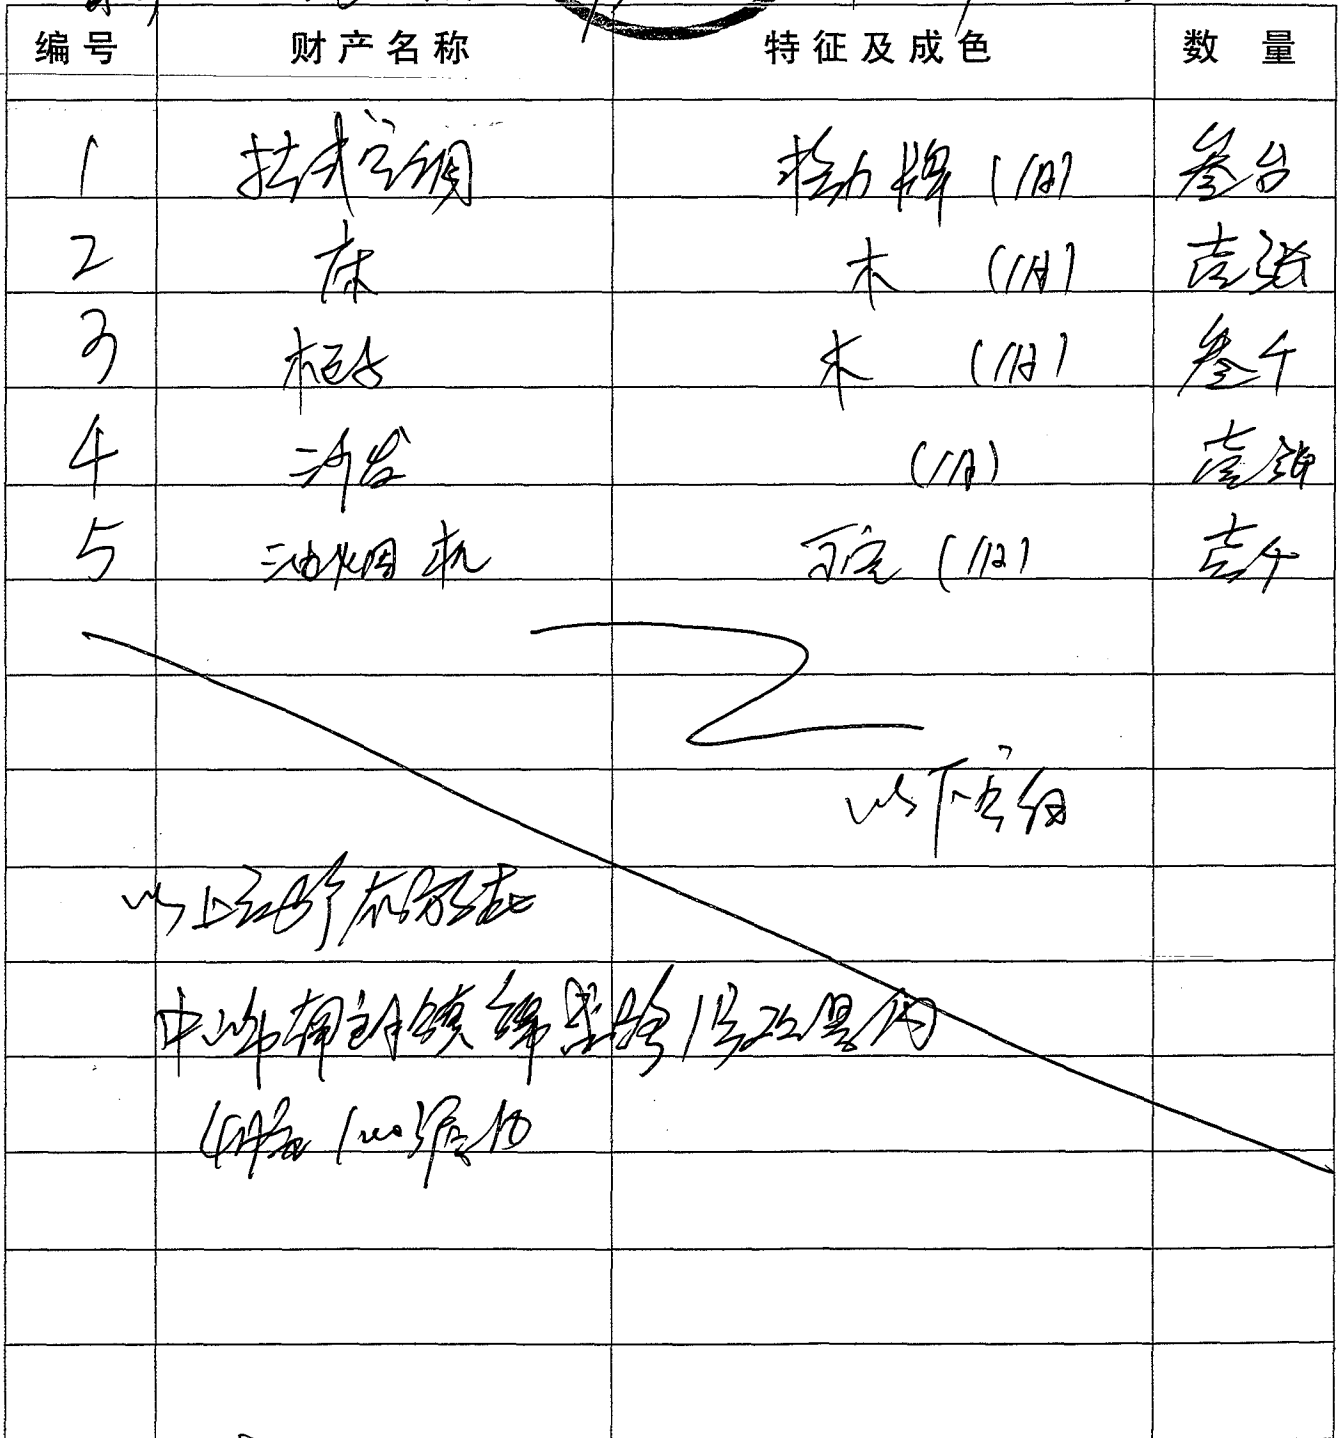 编号 财产名称 特征及成色 数量
1 挂式空调 格力牌(旧) 叁台
2 床 木 (旧) 壹张
3 柜台 木 (旧) 叁个
4 沙发 (旧) 壹张
5 油烟机 (旧) 壹个
以下空白
以上
中山市 镇 路1号 内
4 房内